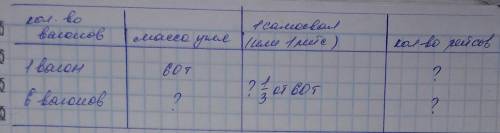 кол. во вагонов | масса угля | 1 самосвал (или 1 рейс) | кол-во рейсов
1 вагон | 60т | ? 1/3 от 60т | ?
6 вагонов | ? | ?